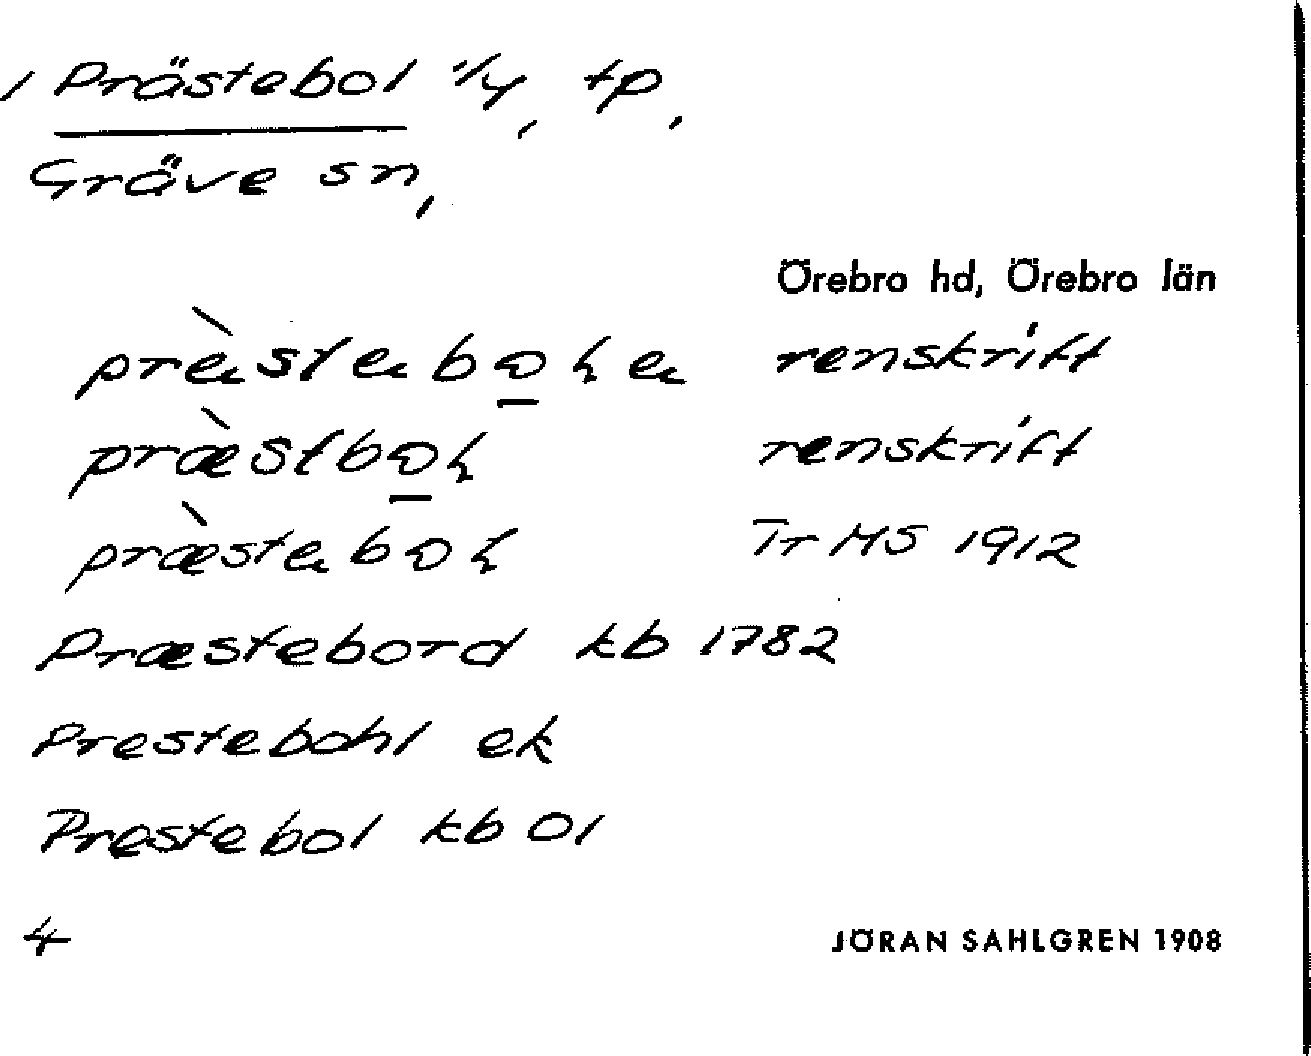 / Prästebol 1/4, tp,
Gräve sn,
Örebro hd, Örebro län
renskrift
renskrift
Tr MS 1912
Præstebord kb 1782
Prestebohl ek
Prestebol kb 01
4
JÖRAN SAHLGREN 1908